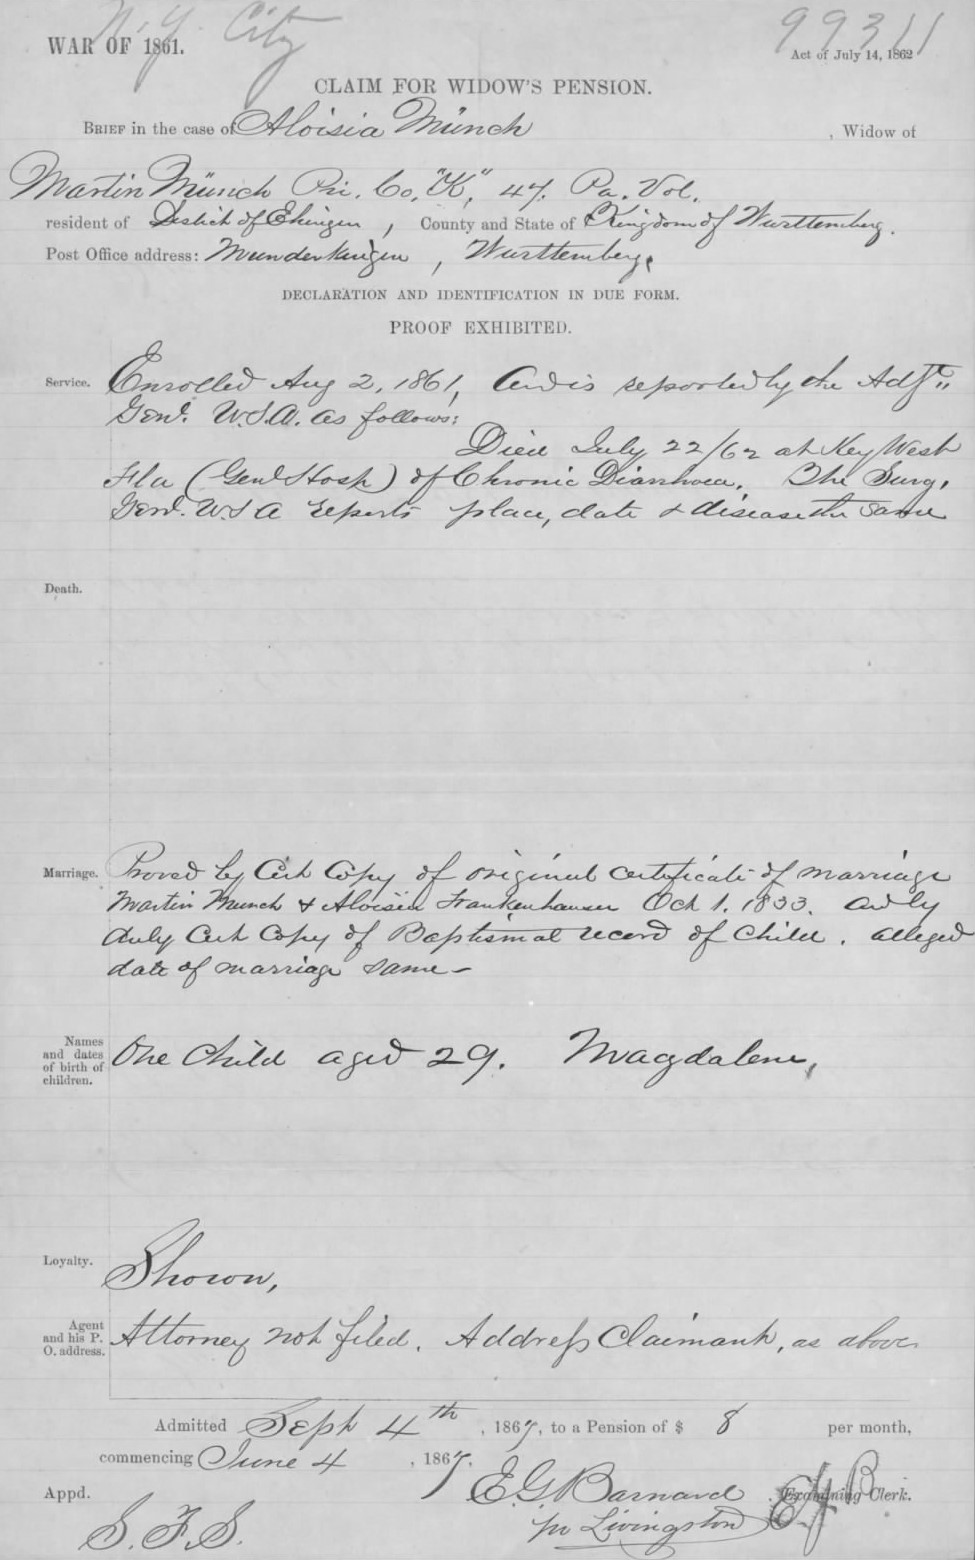 N.Y. City
99311
WAR OF 1861.
Act of July 14, 1862
CLAIM FOR WIDOW'S PENSION.
BRIEF in the case of Aloisia Münch, Widow of
Martin Münch Pri. Co. "K", 47. Pa. Vol.
resident of District of Ehingen, County and State of Kingdom of Wurttemberg.
Post Office address: Munderkingen, Wurttemberg.
DECLARATION AND IDENTIFICATION IN DUE FORM.
PROOF EXHIBITED.
Service. Enrolled Aug 2, 1861, and is reported by the Adjt
Genl. U.S.A. as follows:
Died July 22/62 at Key West
Fla (Genl Hosp) of Chronic Diarrhoea. The Surg.
Genl. U.S.A reports place, date & disease the same
Death.
Marriage. Proved by Cert Copy of original certificate of marriage
Martin Munch & Aloisia Frankenhauser Oct 1. 1833. and by
duly Cert Copy of Baptismal record of child. alleged
date of marriage same –
Names and dates of birth of children. One Child aged 29. Magdalene,
Loyalty. Shown,
Agent and his P. O. address. Attorney not filed. Address Claimant, as above
Admitted Sept 4th, 1867, to a Pension of $ 8 per month,
commencing June 4, 1867.
E. G. Barnard Examining Clerk.
Appd.
pr Livingston
S. F. S.